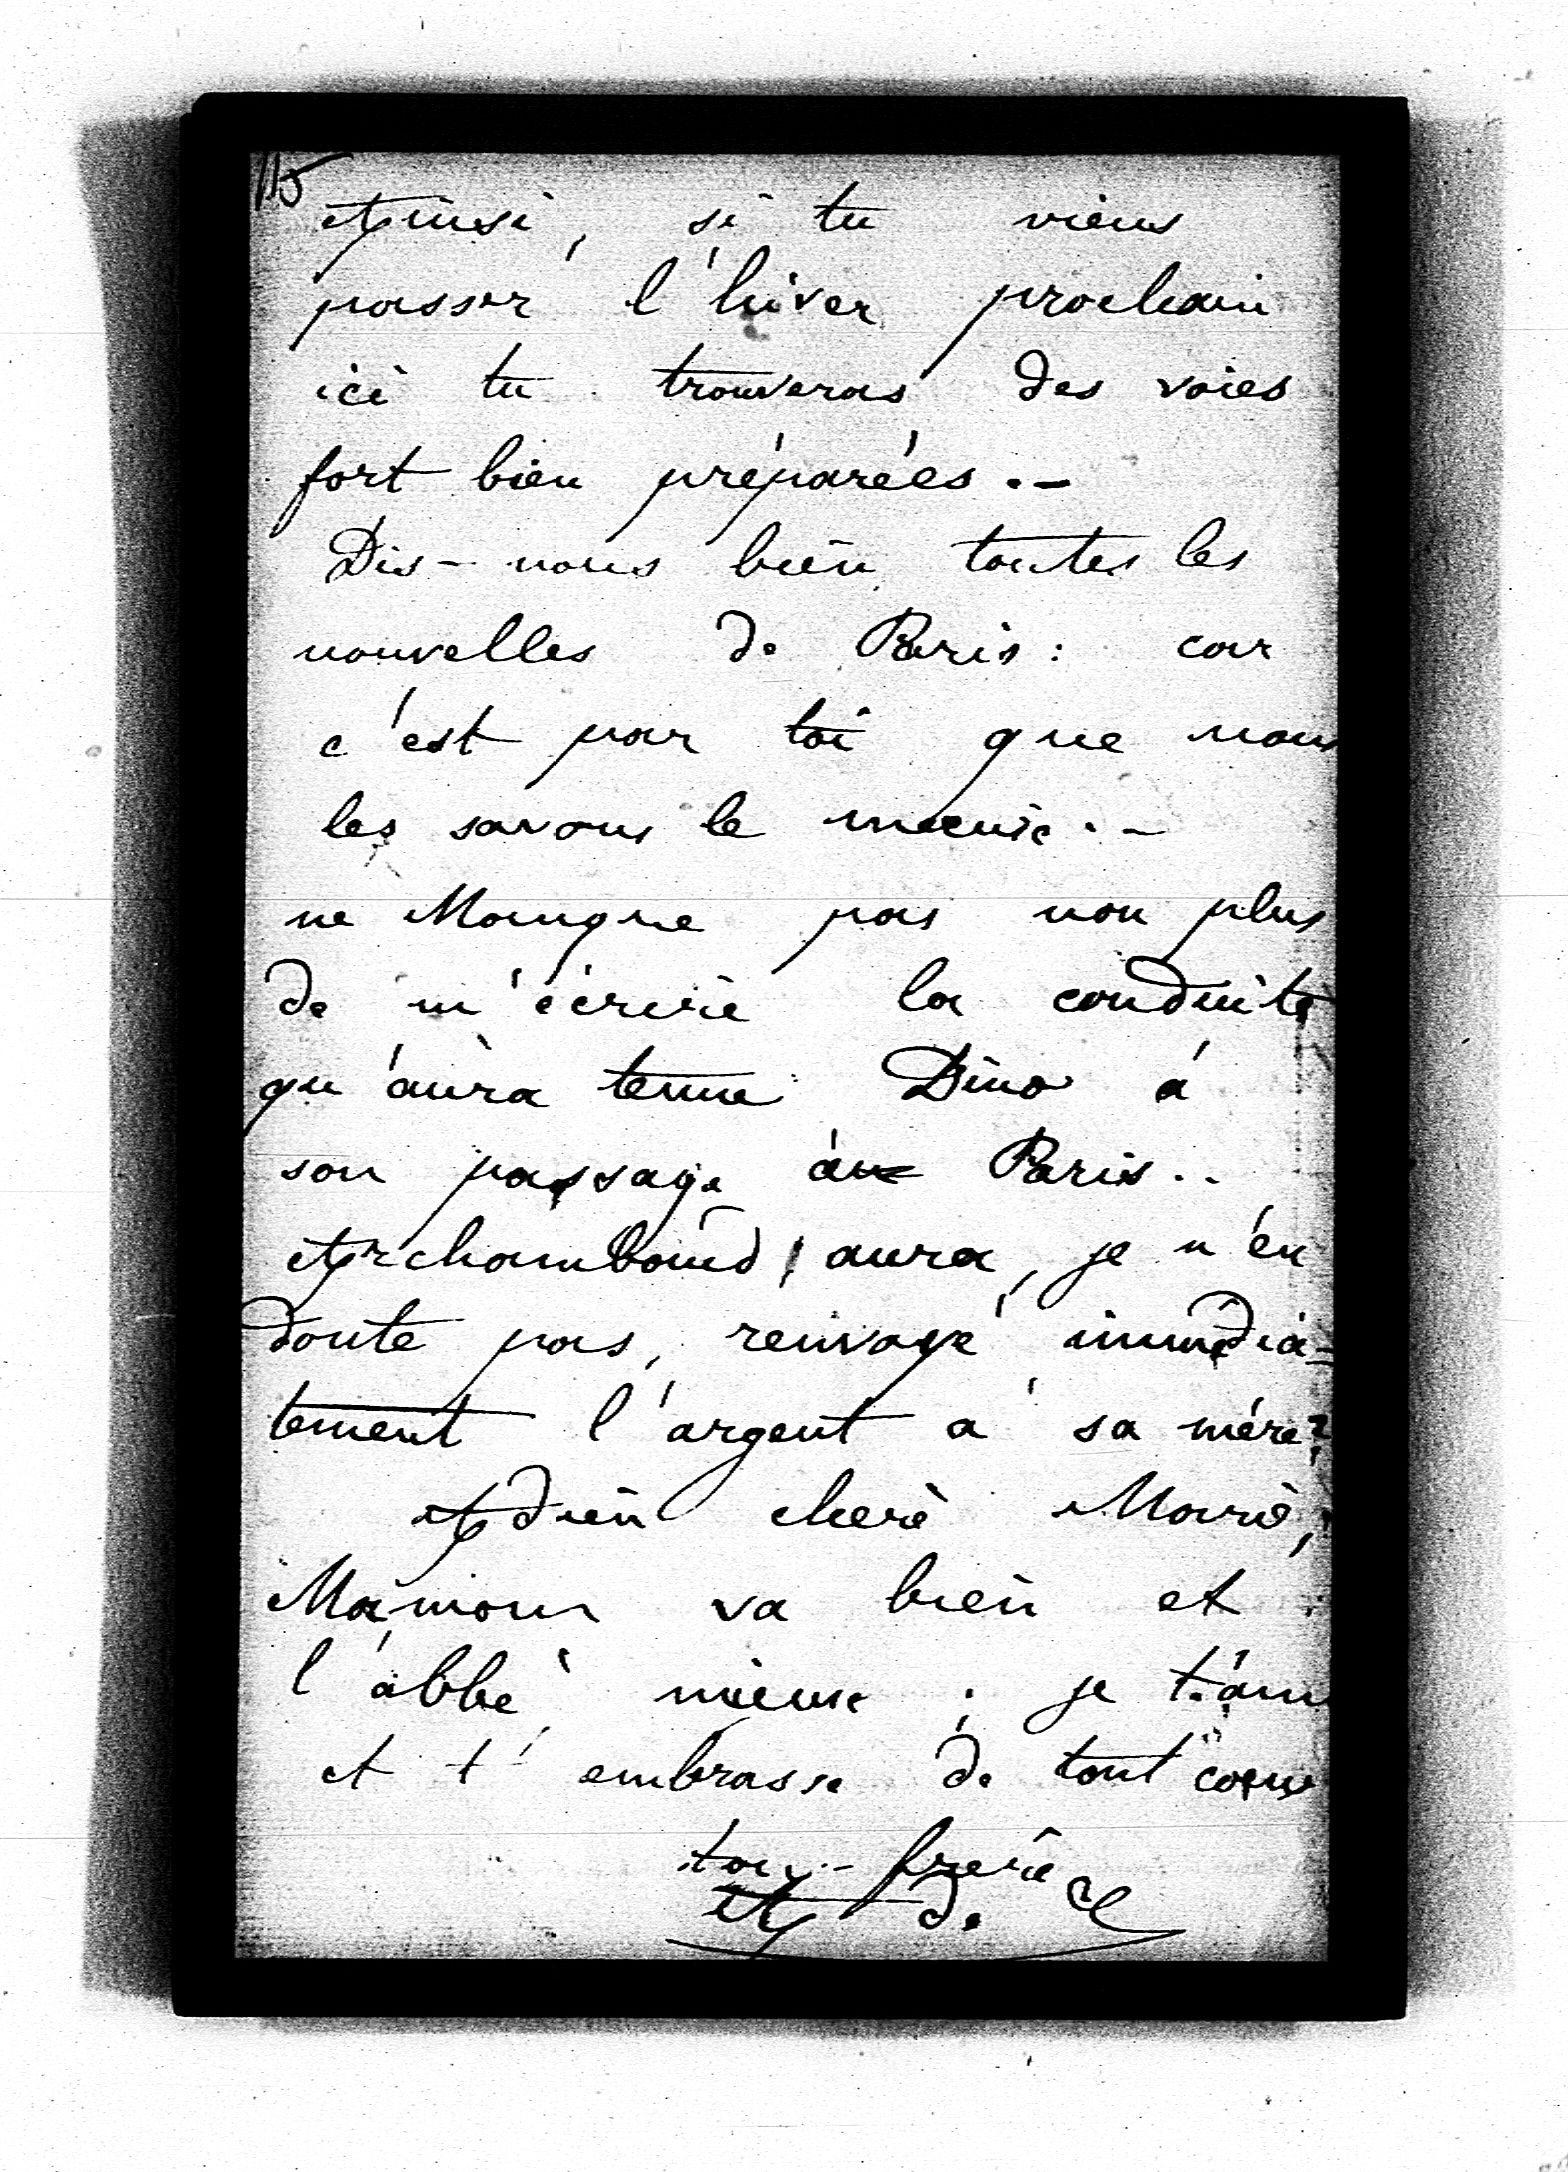 115
Ainsi, si tu viens
passer l'hiver prochain
ici tu trouveras des voies
fort bien préparées. -
Dis-nous bien toutes les
nouvelles de Paris : car
c'est par toi que nous
les savons le mieux. -
ne Manque pas non plus
de m'écrire la conduite
qu'aura tenue Dino à
son passage à Paris..
Archambaud aura, je n'en
doute pas, renvoyé immédia-
tement l'argent à sa mère?
Adieu chère Marie,
Maman va bien et
l'abbé mieux ; je t'aim
et t'embrasse de tout coeur
ton - frère
A de